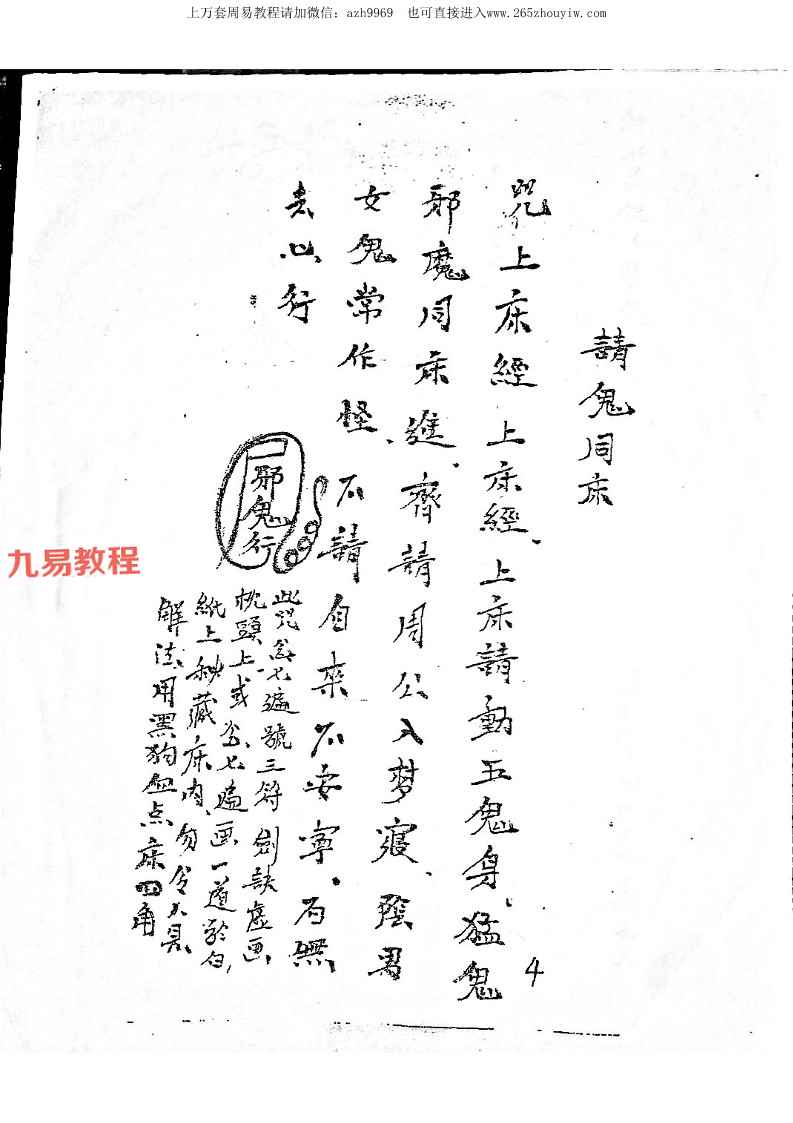 上万套周易教程请加微信：azh9969　也可直接进入www.265zhouyiw.com
請鬼同床
咒上床經上床經、上床請動五鬼身、猛鬼
邪魔同床進、齊請周公入梦寢、陰男
女鬼常作怪、不請自来不安寧、而無
去心行
邪鬼行
此咒念七遍號三符劍訣虛画
枕頭上、或念七遍画一道於白
紙上秘藏床内、勿令人見
解法、用黑狗血点床四角
4
九易教程